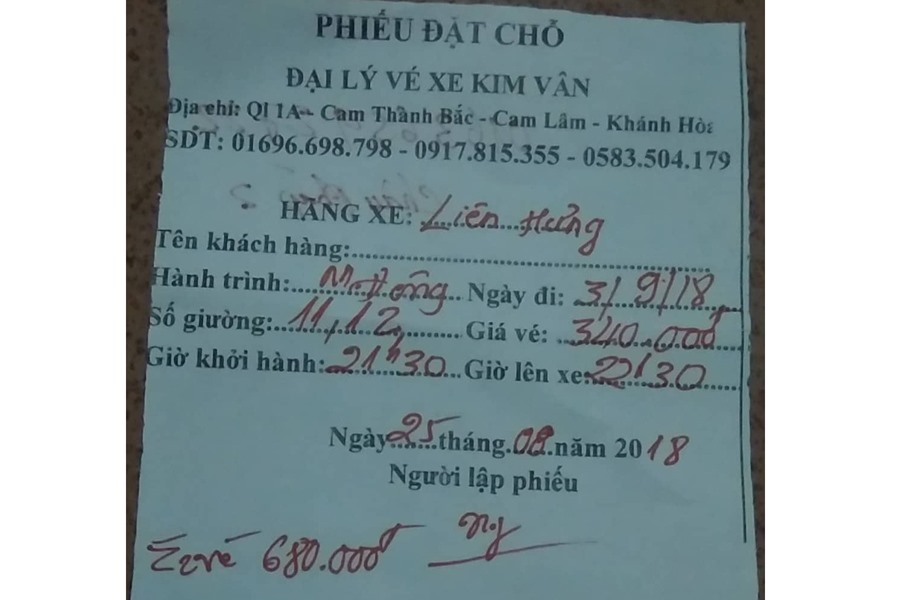 PHIẾU ĐẶT CHỖ
ĐẠI LÝ VÉ XE KIM VÂN
Địa chỉ: Ql 1A - Cam Thành Bắc - Cam Lâm - Khánh Hòa
SDT: 01696.698.798 - 0917.815.355 - 0583.504.179
HÃNG XE: Liên Hưng
Tên khách hàng:
Hành trình: M. Đông Ngày đi: 3/9/18
Số giường: 11,12 Giá vé: 340.000đ
Giờ khởi hành: 21h30 Giờ lên xe: 22h30
Ngày 25 tháng 08 năm 2018
Người lập phiếu
vé 680.000đ